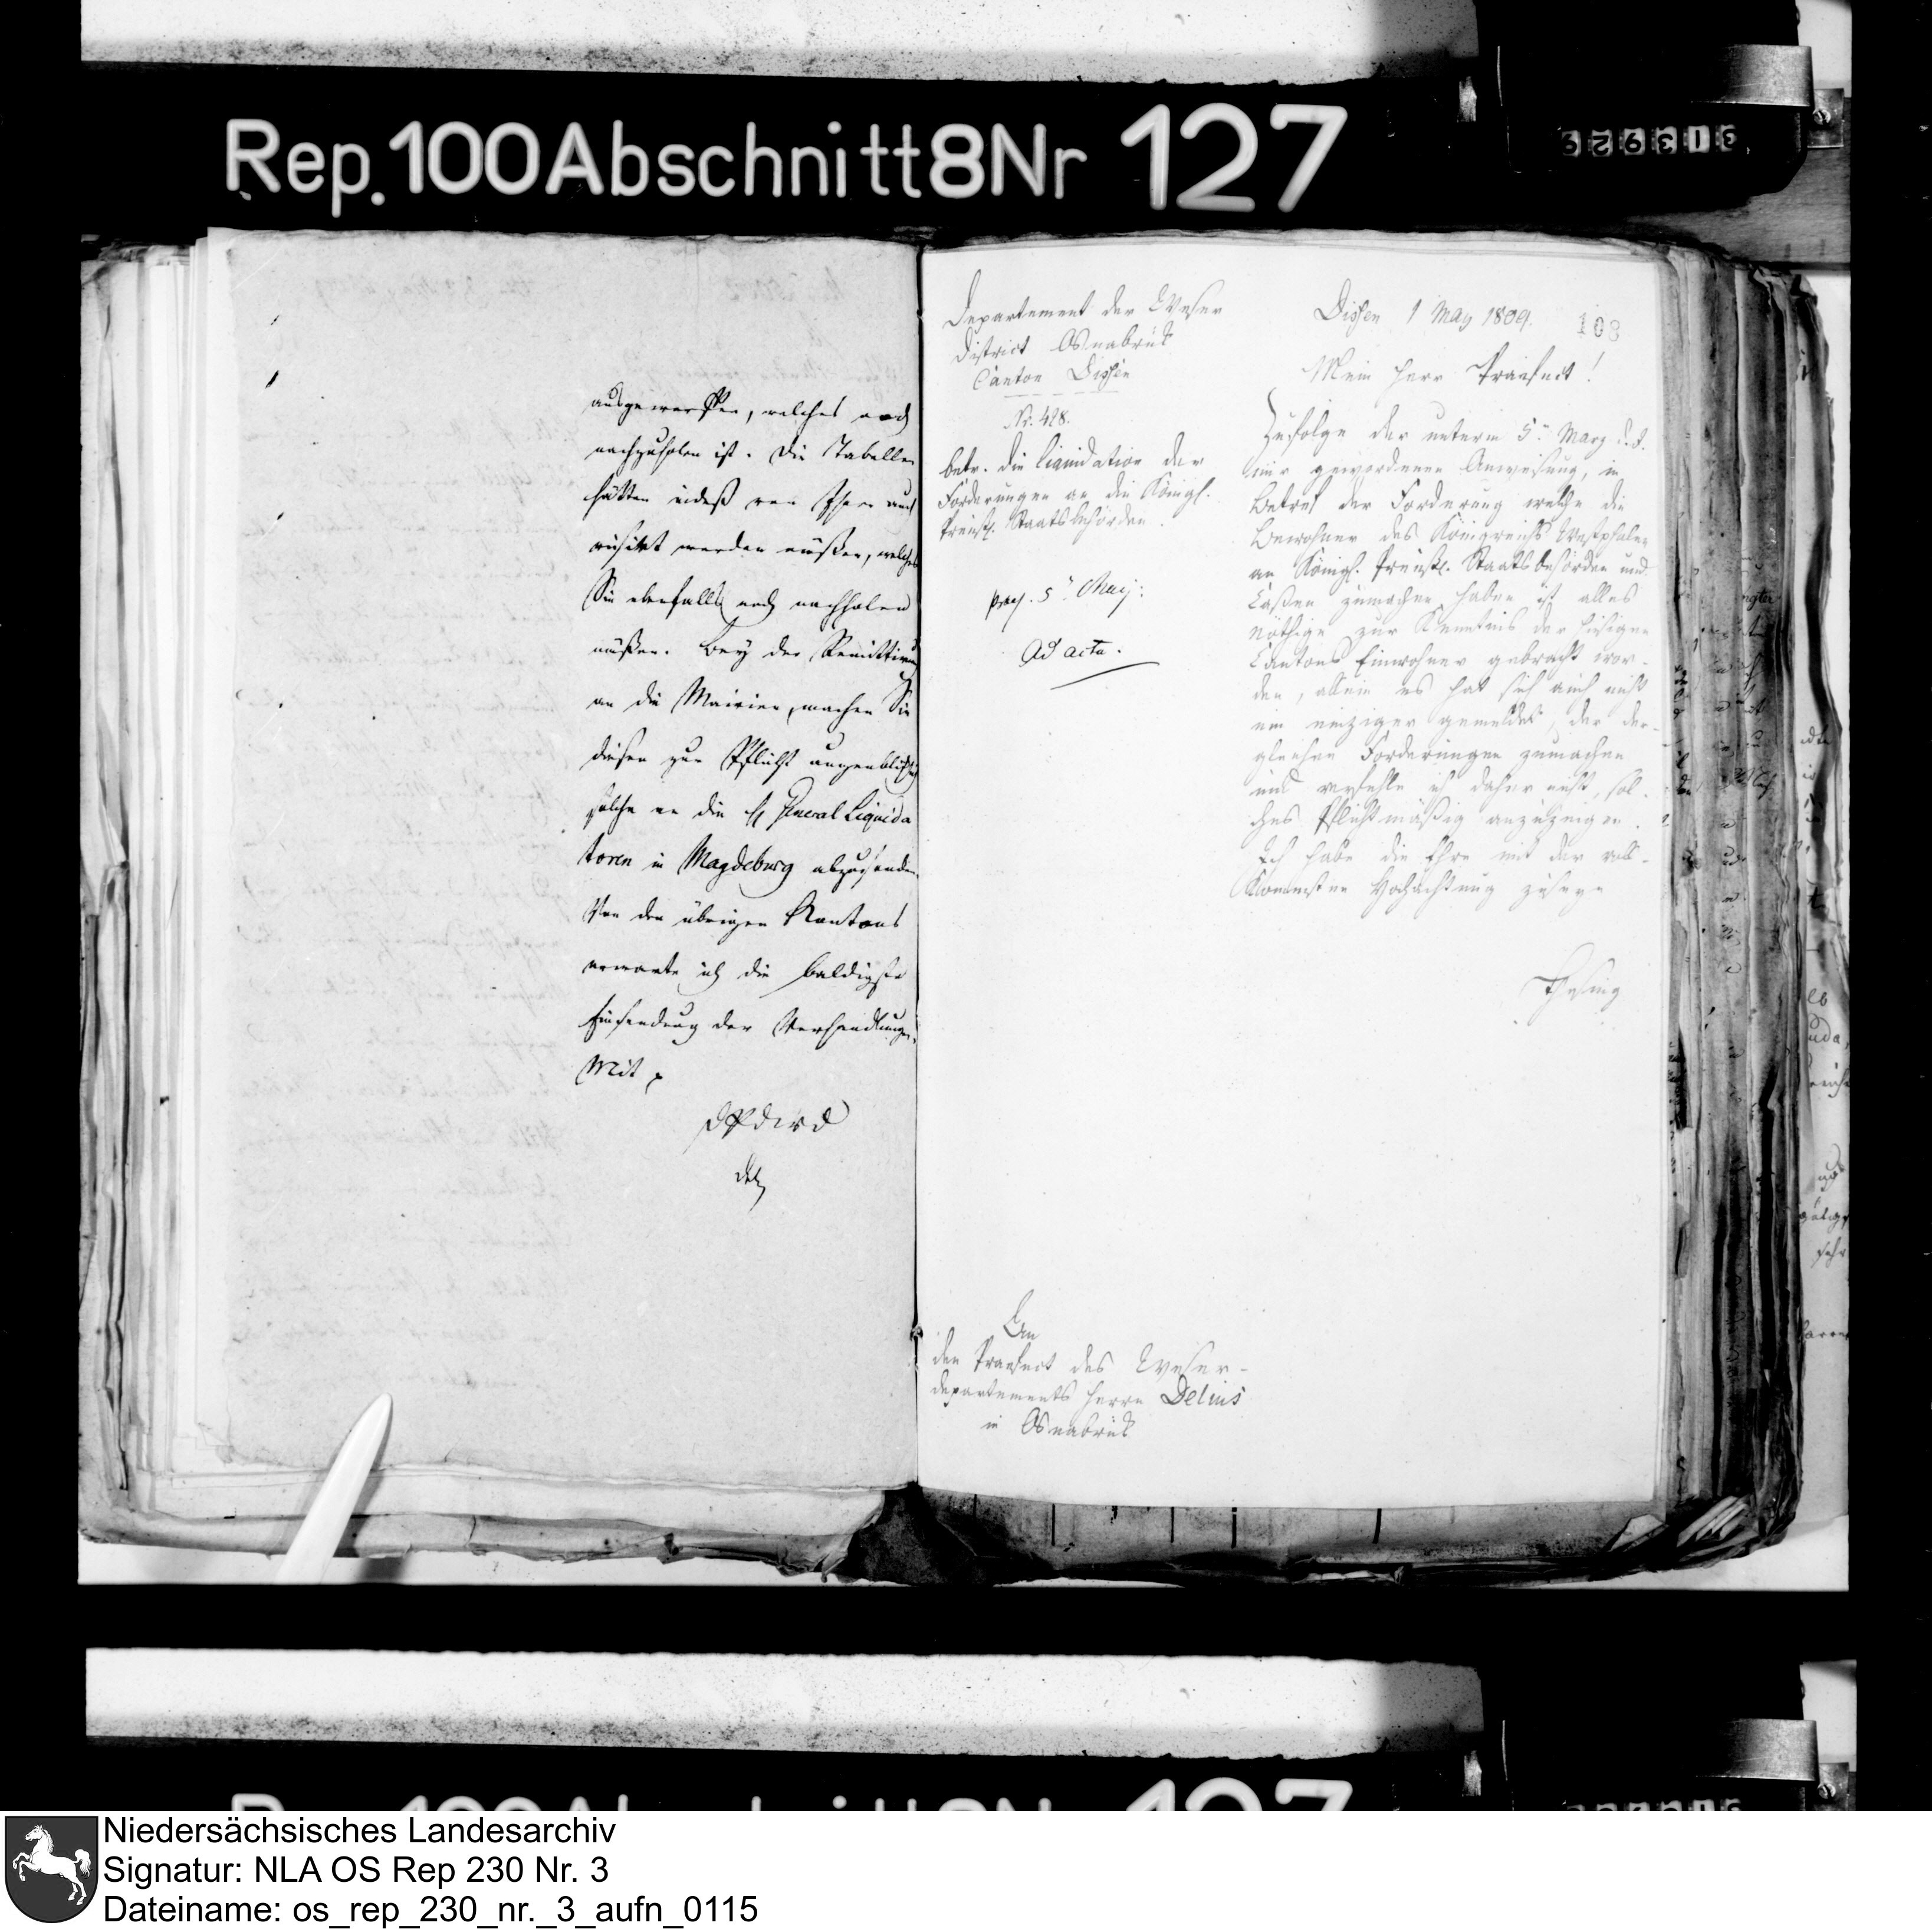 Rep.100Abschnitt8Nr 127
313929
ausgeworffen, welches noch
nachzuholen ist. Die Tabellen
hätten indeß von Ihnen auch
visirt werden müßen, welches
Sie ebenfalls noch nachholen
müßen. Bey der Remittirung
an die Mairien, machen Sie
diesen zur Pflicht augenblicklich
solche an die H General Liquida
toren in Magdeburg abzusenden
Von den übrigen Kantons
erwarte ich die baldigste
Einsendung der Verhandlungen.
Mit
Departement der Weser
District Osnabrük
Canton Dissen
Nr. 428.
betr. die Liquidation der
Forderungen an die Königl.
Preuß. Staatsbehörden.
praes. 5n May.
Ad acta.
An
den Praefect des Weser-
departements Herrn Delius
in Osnabrük
Dissen 1 May 1809.
108
Mein Herr Praefect!
Zufolge der unterm 5n Marz d. J.
mir gewordenen Anweisung, in
Betref der Forderung welche die
Bewohner des Königreichs Westphalen
an Königl. Preuß. Staatsbehörden und
Caßen zumachen haben ist alles
Nöthige zur Kenntnis der hisigen
Cantons Einwohner gebracht wor-
den, allein es hat sich auch nicht
ein einziger gemeldet, der der-
gleichen Forderungen zumachen
und verfehle ich daher nicht, sol-
ches Pflichtmäßig anzuzeigen.
Ich habe die Ehre mit der voll-
kommensten Hochachtung zuseyn
Thesing
Niedersächsisches Landesarchiv
Signatur: NLA OS Rep 230 Nr. 3
Dateiname: os_rep_230_nr._3_aufn_0115